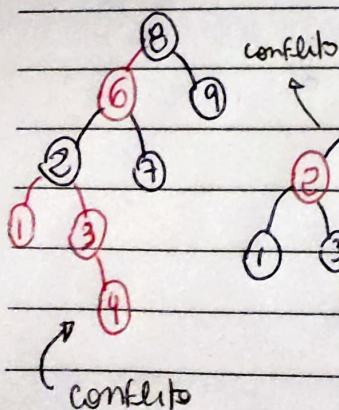 8
conflito
6
9
2
7
2
1
3
1
3
4
conflito